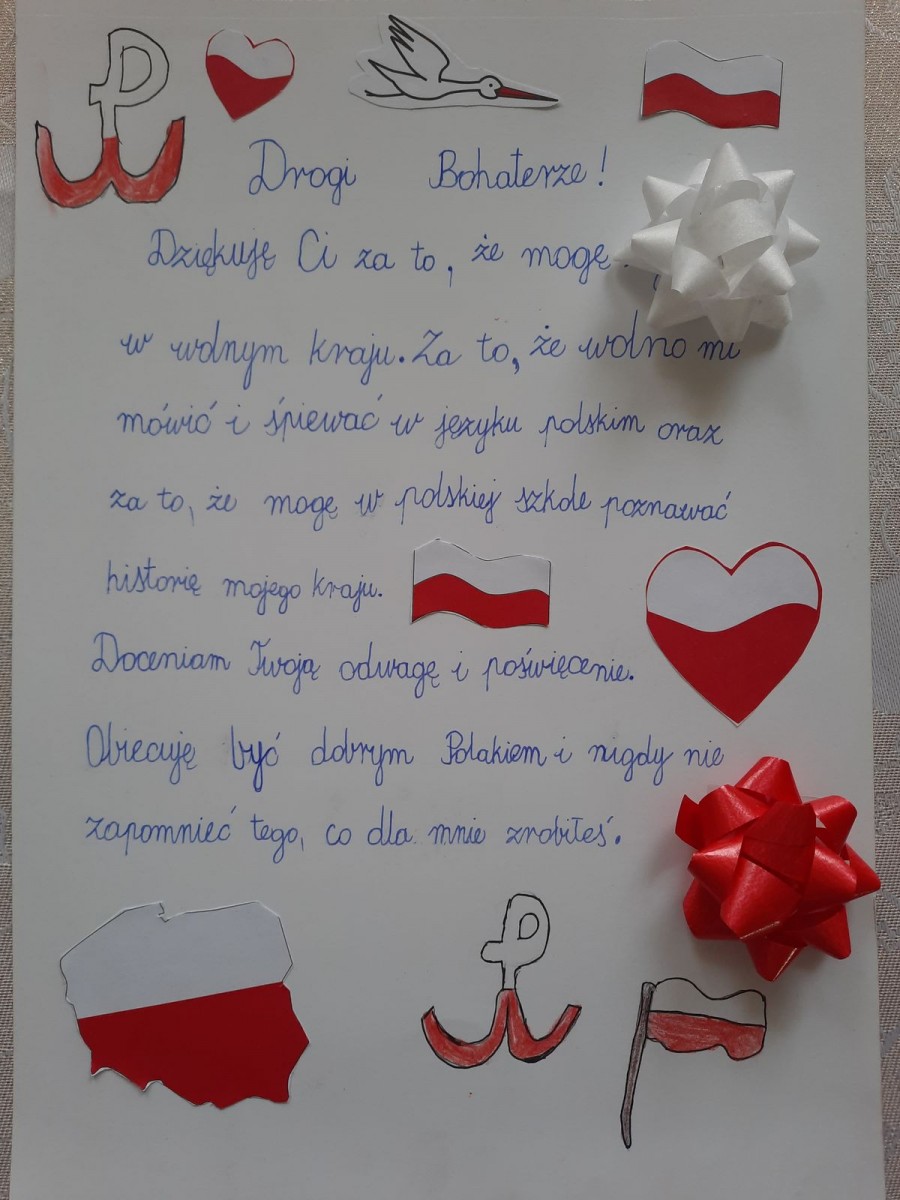 Drogi Bohaterze!
Dziękuję Ci za to, że mogę
w wolnym kraju. Za to, że wolno mi
mówić i śpiewać w języku polskim oraz
za to, że mogę w polskiej szkole poznawać
historię mojego kraju.
Doceniam Twoją odwagę i poświęcenie.
Obiecuję być dobrym Polakiem i nigdy nie
zapomnieć tego, co dla mnie zrobiłeś.